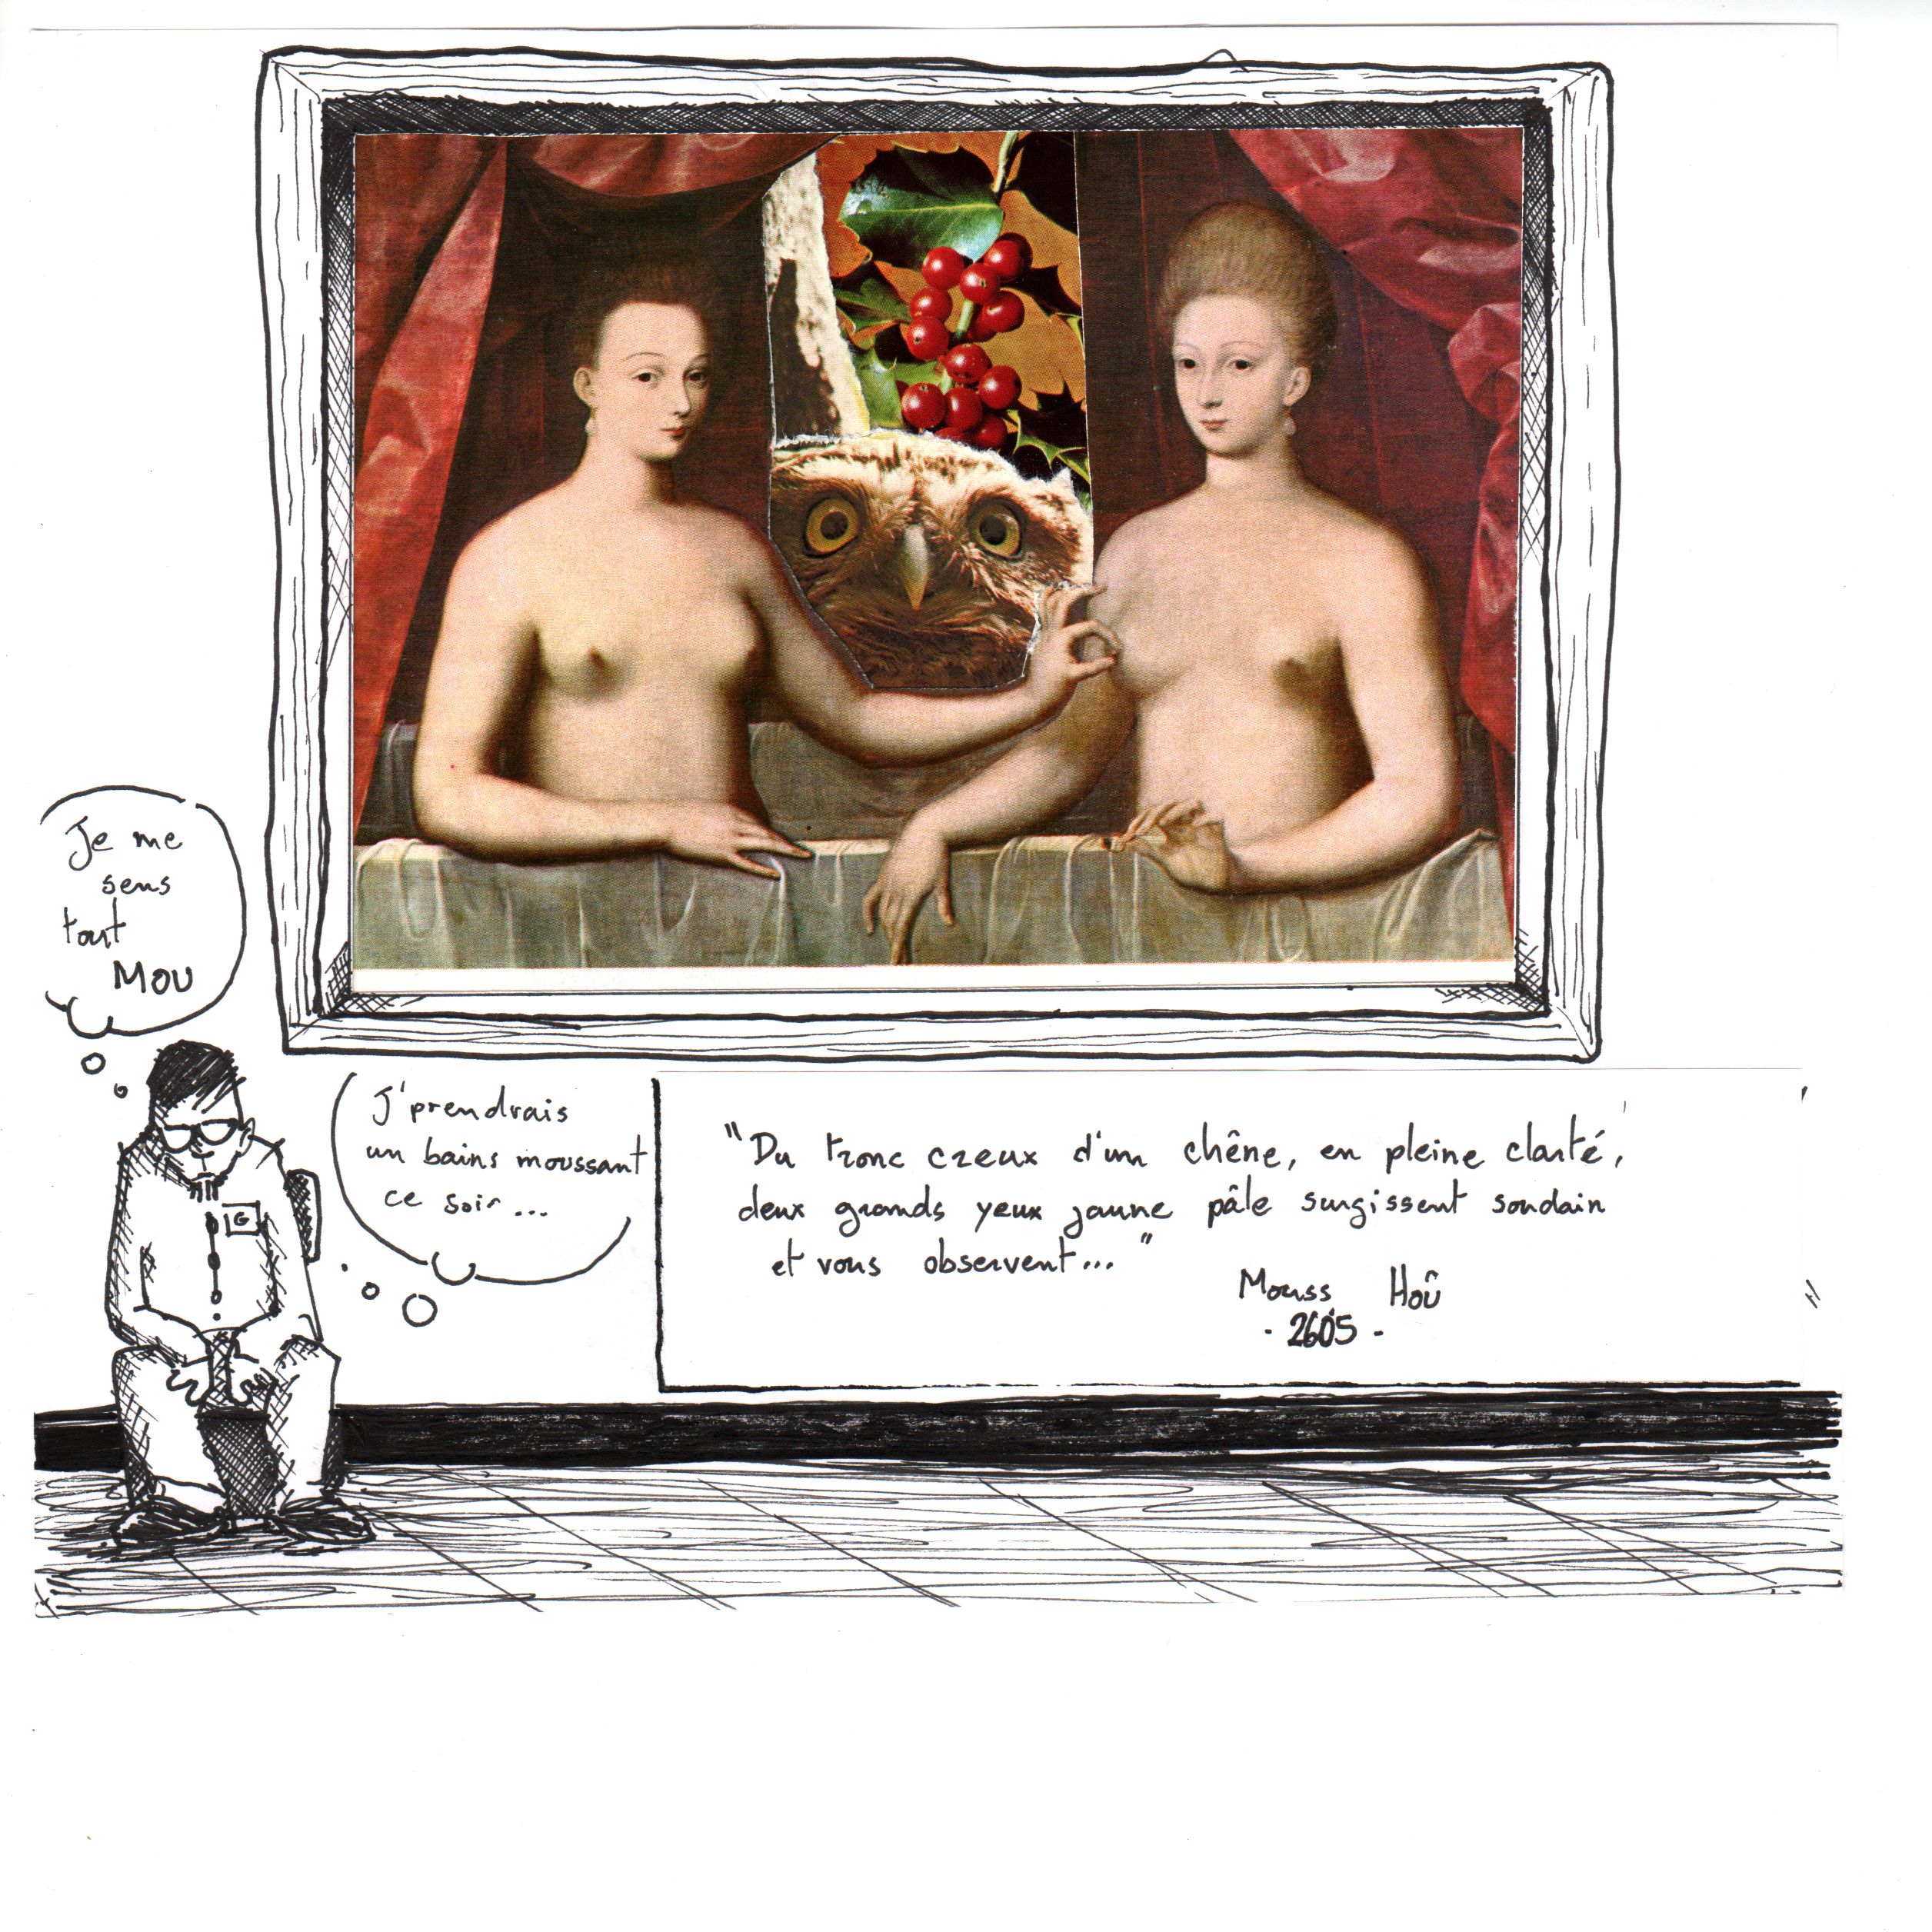 Je me
sens
tout
MOU
J'prendrais
un bains moussant
ce soir...
G
"Du tronc creux d'un chêne, en pleine clarté,
deux grands yeux jaune pâle surgissent soudain
et vous observent..."
Mouss Hoû
- 2605 -